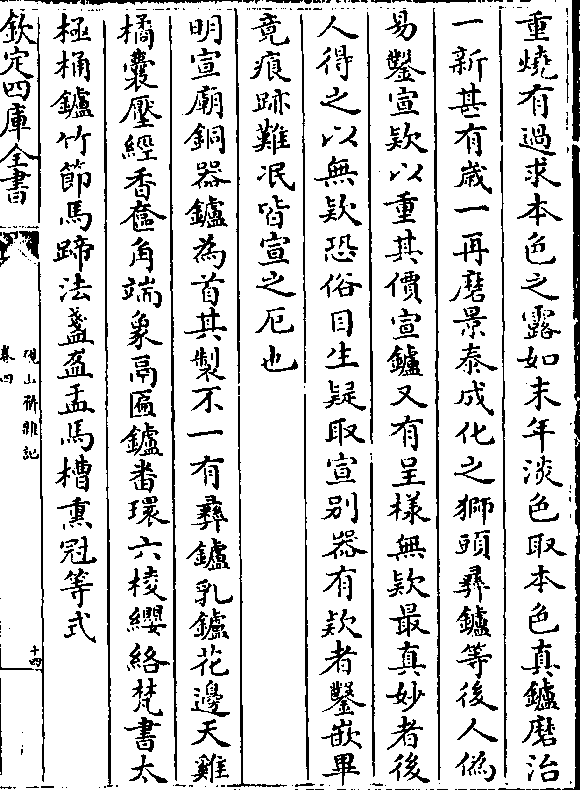 重燒有過求本色之露如末年淡色取本色真鑪磨治
一新甚有歲一再磨景泰成化之獅頭彞鑪等後人僞
易鑿宣欵以重其價宣鑪又有呈樣無欵最真妙者後
人得之以無欵恐俗目生疑取宣别器有欵者鑿嵌畢
竟痕跡難泯皆宣之厄也
明宣廟銅器鑪為首其製不一有彞鑪乳鑪花邊天雞
橘囊壓經香奩角端象鬲匾鑪畨環六棱纓絡梵書太
極桶鑪竹節馬蹄法盞盈盂馬槽熏冠等式
欽定四庫全書
硯山齋雜記
卷四
十四